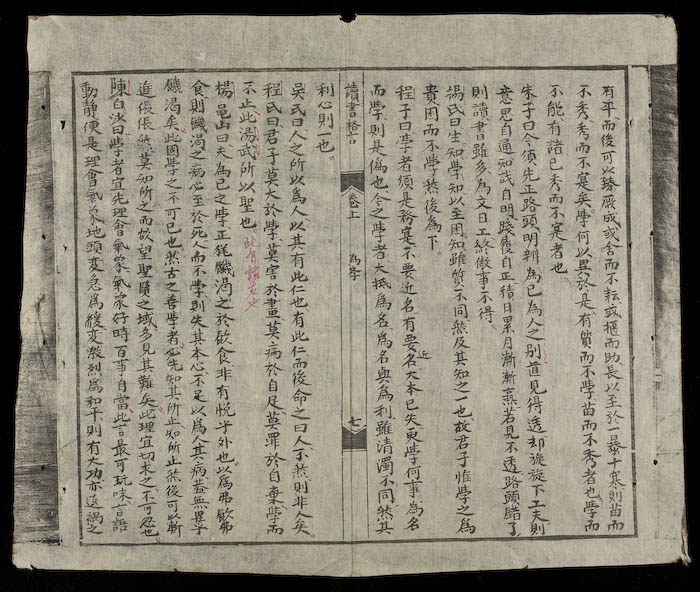 有平而後可以臻厥成或舍而不耘或揠而助長以至於一暴十寒則苗而
不秀秀而不寔矣學何以異於是有質而不學苗而不秀者也學而
不能有諸己秀而不寔者也
朱子曰今須先正路頭明辨為己為人之別直見得透却旋旋下工夫則
意思自通知識自明踐履自正積日累月漸漸熹若見不透路頭錯了
則讀書雖多為文日工終做事不得
楊氏曰生知學知以至困知雖質不同然及其知之一也故君子惟學之為
貴困而不學然後為下
程子曰學者須是務寔不要近名有要近名大本已失更學何事為名
而學則是偽也今之學者大抵為名為名與為利雖清濁不同然其
讀書格言 卷上 為學 七
利心則一也
吳氏曰人之所以為人以其有此仁也有此仁而後命之曰人不然則非人矣
程氏曰君子莫大於學莫害於畫莫病於自足莫罪於自棄學而
不止此湯武所以聖也
楊龜山曰夫為己之學正猶饑渴之於飲食非有悅乎外也以為弗飲弗
食則饑渴之病心至於死人而不學則失其本心不足以為人其病蓋無異乎
饑渴矣此固學之不可已也然古之善學者必先知其所止知所止然後可以漸
進倀倀然莫知所之而欲望聖賢之域多見其難矣此理宜切求之不可忽也
陳白沙曰學者宜先理會氣象氣象好時百事自當此言最可玩味言語
動靜便是理會氣象地頭變急為緩變激烈為和平則有大功亦遠禍之